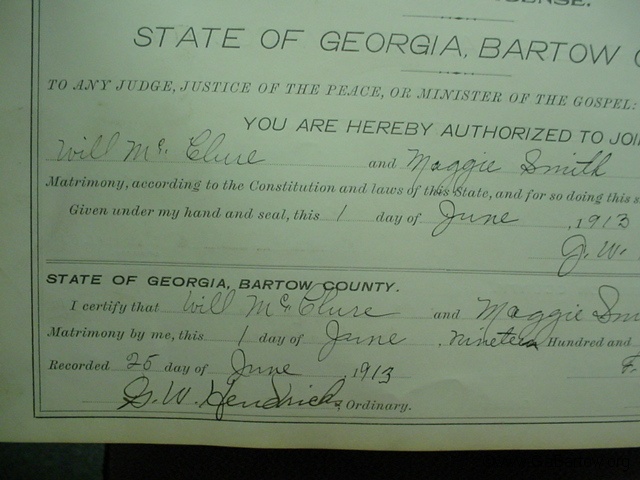 LICENSE.
STATE OF GEORGIA, BARTOW
TO ANY JUDGE, JUSTICE OF THE PEACE, OR MINISTER OF THE GOSPEL:
YOU ARE HEREBY AUTHORIZED TO JOIN
Will Mc Clure and Maggie Smith
Matrimony, according to the Constitution and laws of this State, and for so doing this
Given under my hand and seal, this 1 day of June , 1913
J. W.
STATE OF GEORGIA, BARTOW COUNTY.
I certify that Will Mc Clure and Maggie Smi
Matrimony by me, this 1 day of June , nineteen Hundred and
Recorded 25 day of June , 1913 F.
G. W. Hendricks, Ordinary.